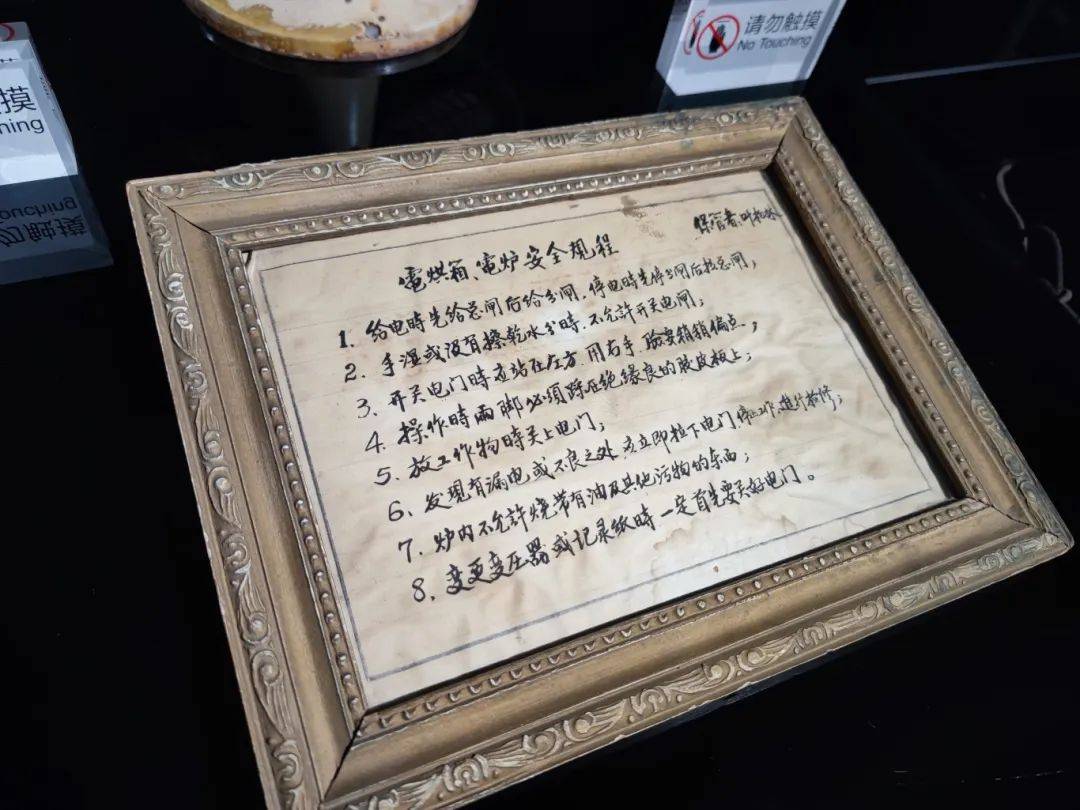 请勿触摸
No Touching
摸
hing
保管者:叶
電烘箱、電炉安全規程
1. 给电時先给总闸后给分闸，停电時先停分闸后拉总闸；
2. 手湿或没有擦乾水分時，不允許开关电闸；
3. 开关电门時应站在左方，用右手，脸要稍稍偏点；
4. 操作時兩脚必須踩在绝缘良的胶皮板上；
5. 放工作物時关上电门；
6. 发现有漏电或不良之处，应立即拉下电门，停止工作，進行检修；
7. 炉内不允許烧带有油及其他污物的东西；
8. 变更变压器或记录纸時一定首先要关好电门。